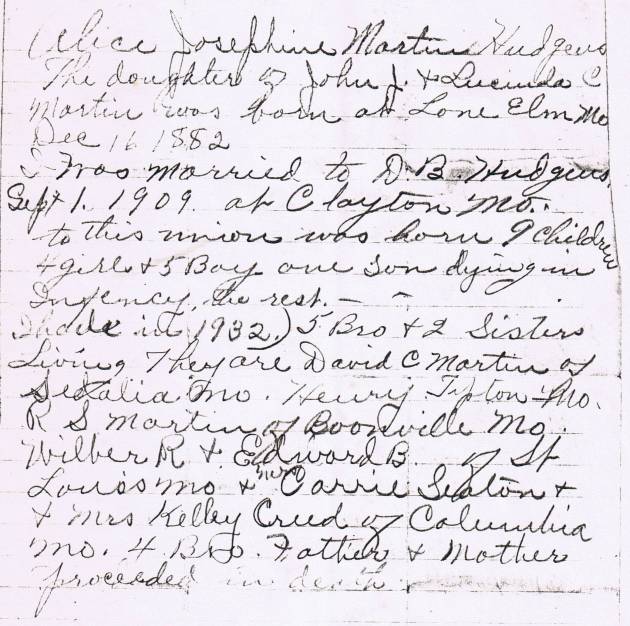 Alice Josephine Martin Hudgens
The doughter of John J. & Lucinda C
Martin was born at Lone Elm Mo
Dec 16 1882
I was married to D. B. Hudgens
Sept 1. 1909 at Clayton Mo.
to this union was born 9 children
4 girls & 5 Boy one son dying in
Infency, the rest. — -
I have in (1932) 5 Bro & 2 Sisters
Living They are David C Martin of
Sedalia Mo. Henry Tipton Mo.
R S Martin of Boonville Mo.
Wilber R & Edward B. of St
Louis Mo & Mrs Carrie Seaton &
& Mrs Kelley Creed of Columbia
Mo. 4 Bro. Father & Mother
proceeded in death